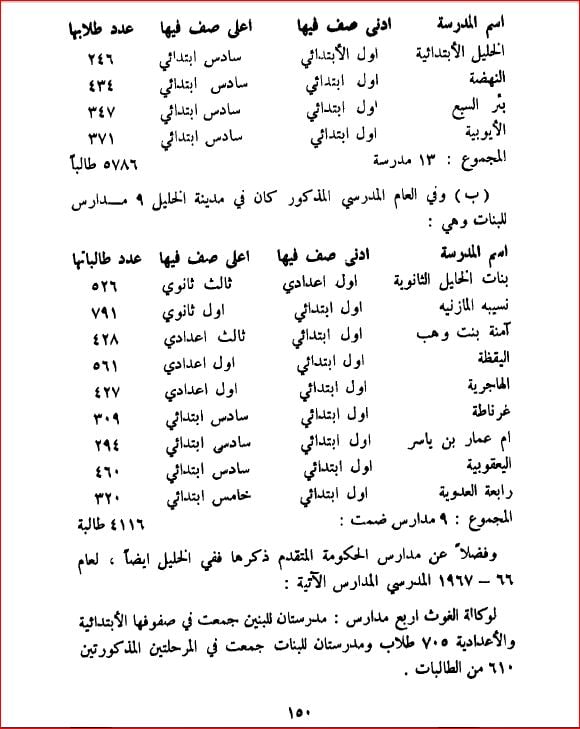 اسم المدرسة ادنى صف فيها اعلى صف فيها عدد طلابها
الخليل الأبتدائية اول الأبتدائي سادس ابتدائي ٢٤٦
النهضة اول ابتدائي سادس ابتدائي ٤٣٤
بئر السبع اول ابتدائي سادس ابتدائي ٣٤٧
الأيوبية اول ابتدائي سادس ابتدائي ٣٧١
المجموع : ١٣ مدرسة ٥٧٨٦ طالباً
(ب) وفي العام المدرسي المذكور كان في مدينة الخليل ٩ مـــدارس
للبنات وهي :
اسم المدرسة ادنى صف فيها اعلى صف فيها عدد طالباتها
بنات الخليل الثانوية اول اعدادي ثالث ثانوي ٥٢٦
نسيبه المازنيه اول ابتدائي اول ثانوي ٧٩١
آمنة بنت وهب اول ابتدائي ثالث اعدادي ٤٢٨
اليقظة اول ابتدائي اول اعدادي ٥٦١
الهاجرية اول ابتدائي اول اعدادي ٤٢٧
غرناطة اول ابتدائي سادس ابتدائي ٣٠٩
ام عمار بن ياسر اول ابتدائي سادسى ابتدائي ٢٩٤
اليعقوبية اول ابتدائي سادس ابتدائي ٤٦٠
رابعة العدوية اول ابتدائي خامس ابتدائي ٣٢٠
المجموع : ٩ مدارس ضمت : ٤١١٦ طالبة
وفضلاً عن مدارس الحكومة المتقدم ذكرها ففي الخليل ايضاً ، لعام
٦٦ – ١٩٦٧ المدرسي المدارس الآتية :
لوكااة الغوث اربع مدارس : مدرستان للبنين جمعت في صفوفها الأبتدائية
والأعدادية ٧٠٥ طلاب ومدرستان للبنات جمعت في المرحلتين المذكورتين
٦١٠ من الطالبات .
١٥٠